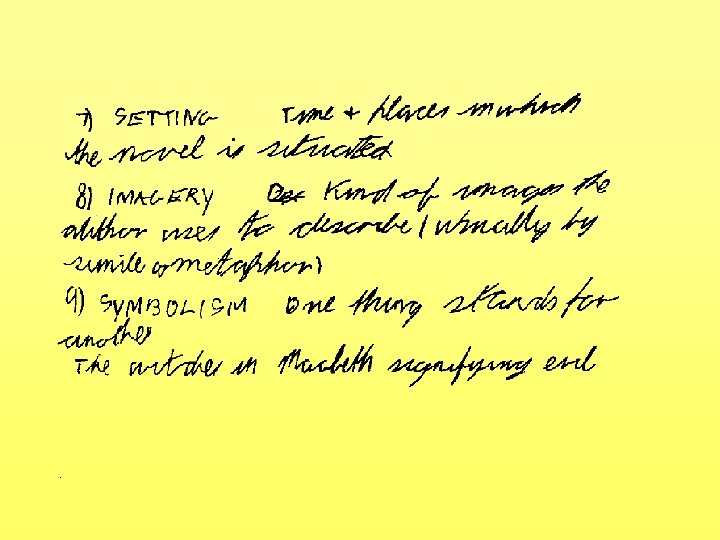 7) SETTING Time + places in which
the novel is situated
8) IMAGERY Kind of images the
author uses to describe (usually by
simile or metaphor)
9) SYMBOLISM one thing stands for
another
The witches in Macbeth signifying evil